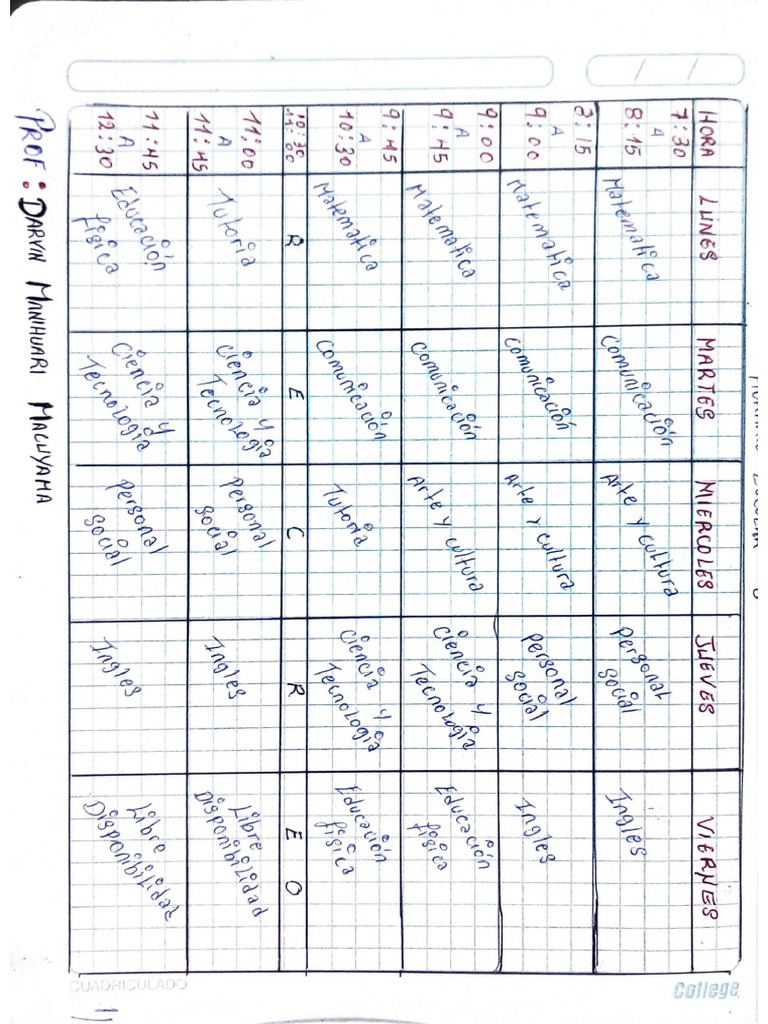 HORA LUNES MARTES MIERCOLES JUEVES VIERNES
7:30 A 8:15 Matematica Comunicación Arte y cultura Personal Social Ingles
8:15 A 9:00 Matematica Comunicación Arte y cultura Personal Social Ingles
9:00 A 9:45 Matematica Comunicación Arte y cultura Ciencia y Tecnologia Educación física
9:45 A 10:30 Matematica Comunicación Tutoria Ciencia y Tecnologia Educación física
10:30 11:00 R E C R E O
11:00 A 11:45 Tutoria Ciencia y Tecnologia Personal Social Ingles Libre Disponibilidad
11:45 A 12:30 Educación física Ciencia y Tecnologia Personal Social Ingles Libre Disponibilidad
PROF: DARVIN MANIHUARI MACUYAMA
College
CUADRICULADO